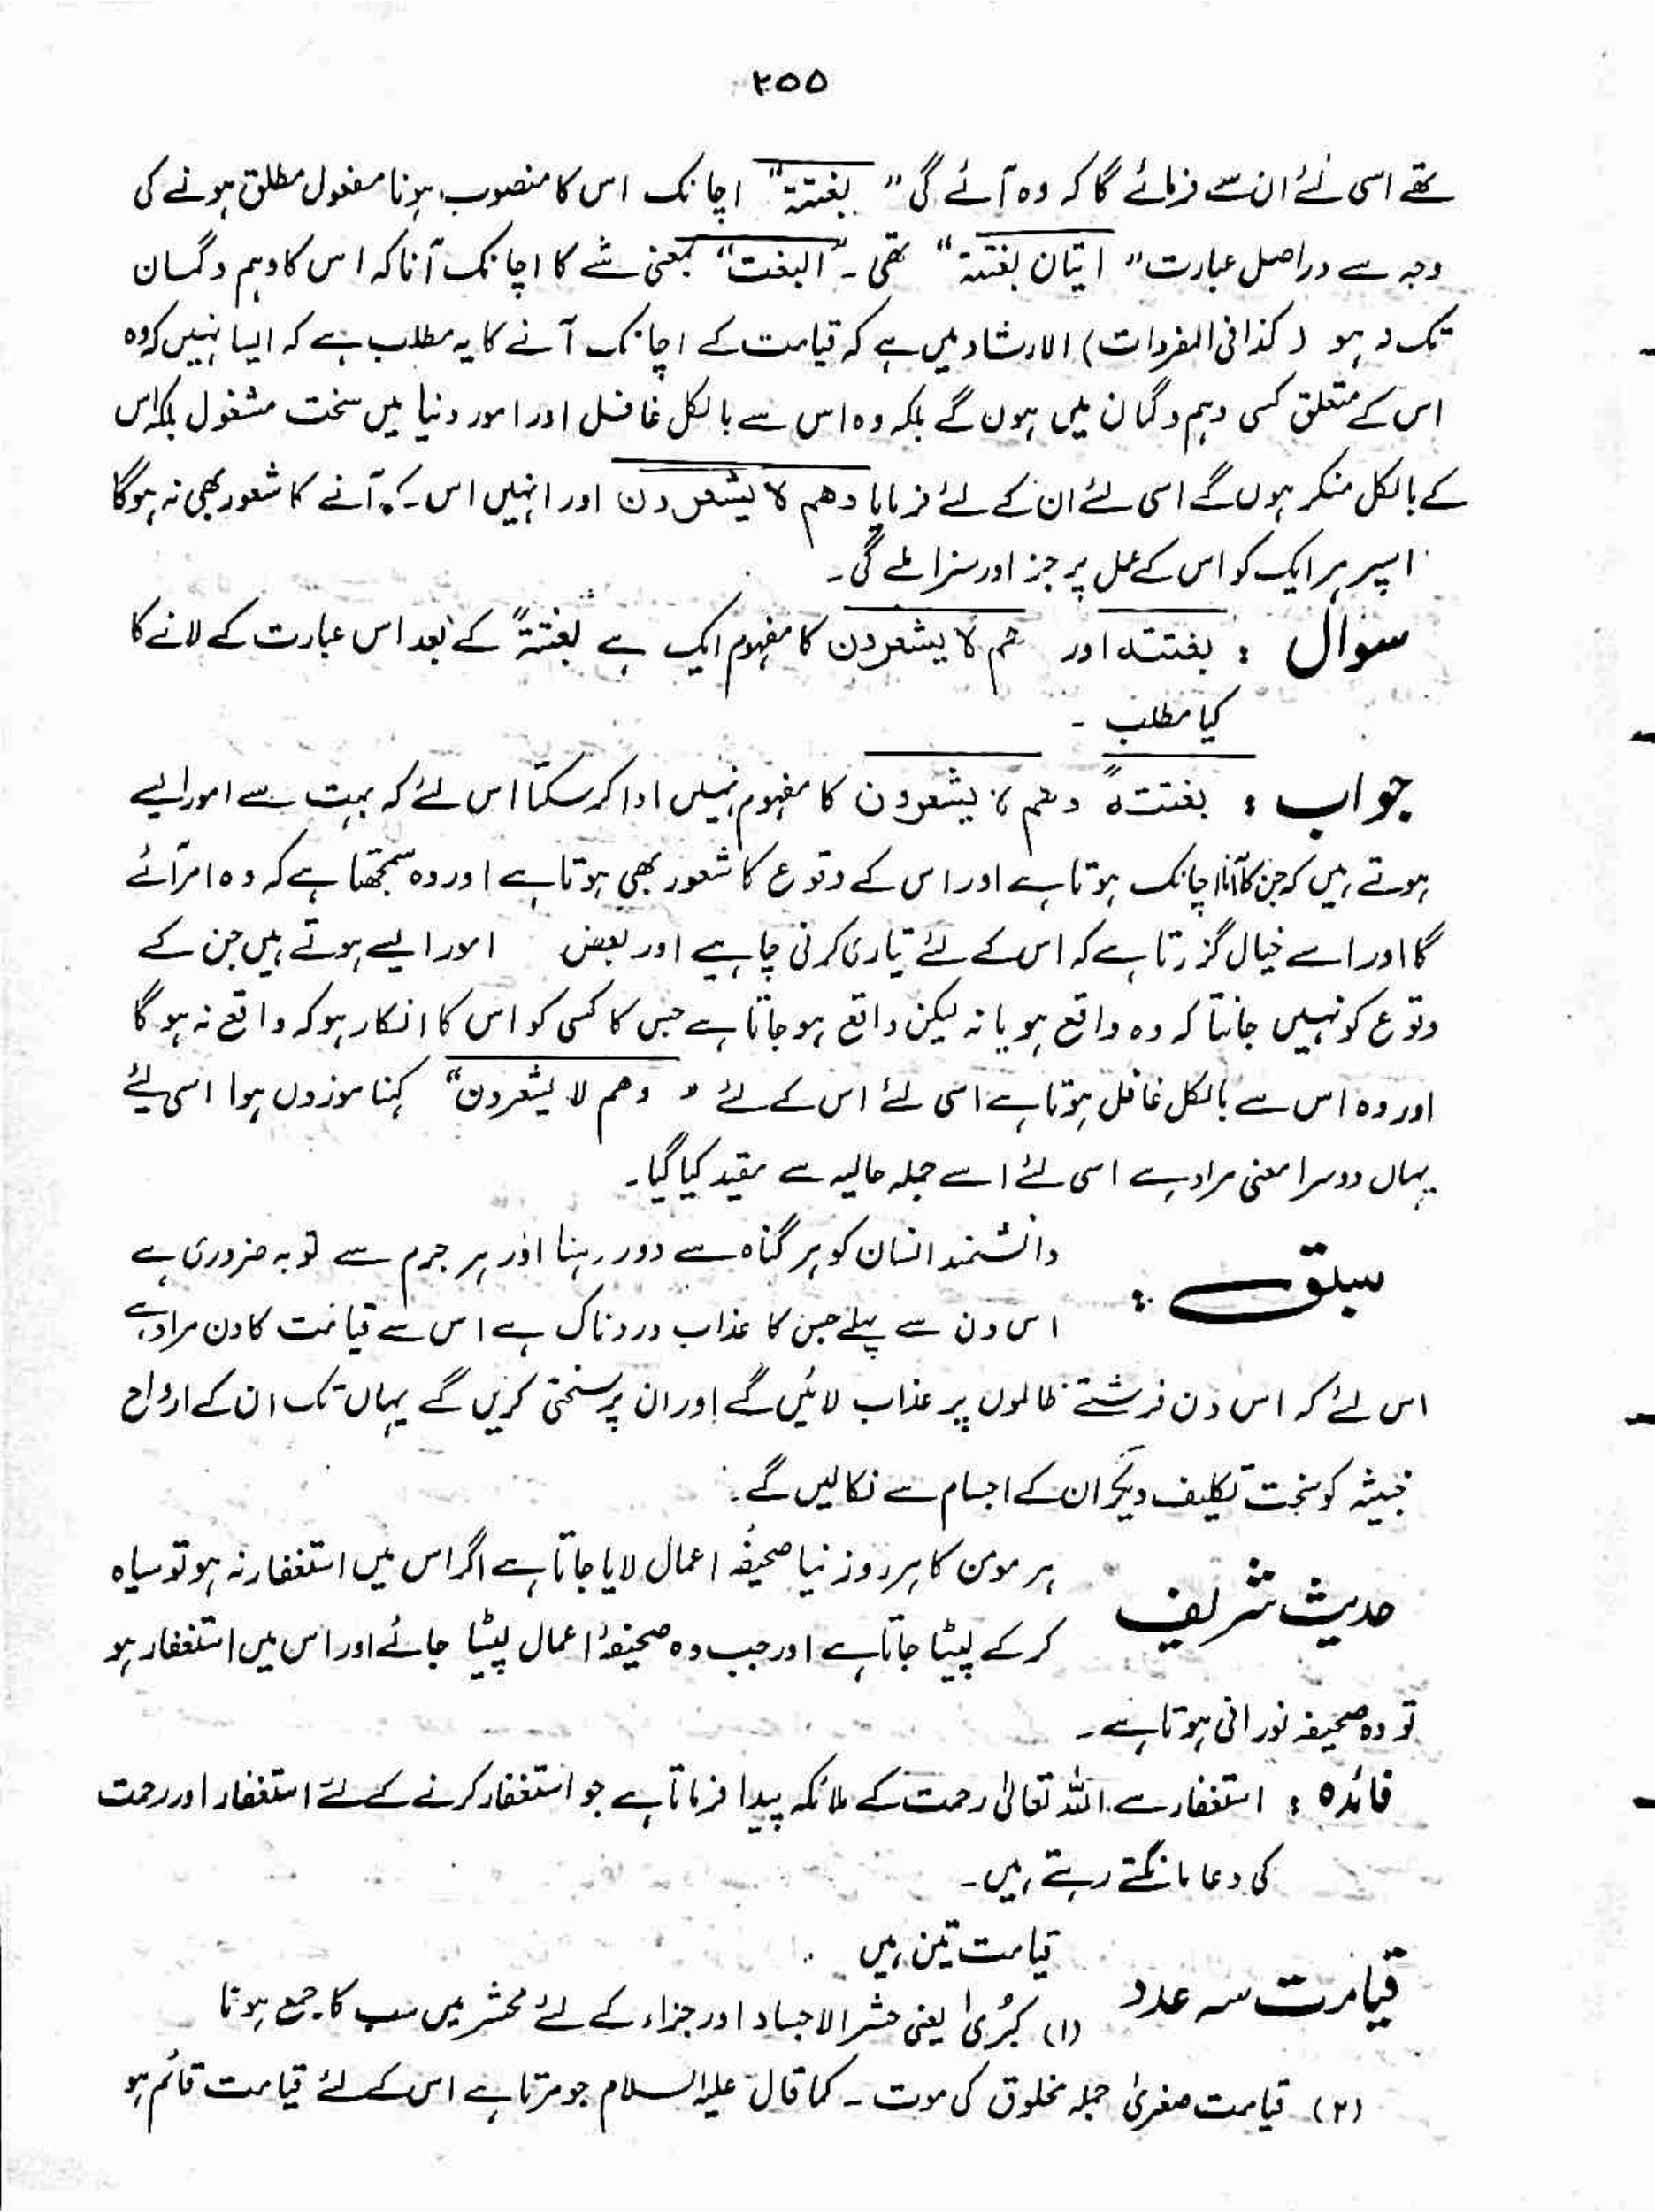 ۲۵۵
تھے اسی لئے ان سے فرمائے گا کہ وہ آئے گی " بغتتہ" اچانک اس کا منصوب ہونا مفعول مطلق ہونے کی
وجہ سے دراصل عبارت " اتیان بغتتہ" تھی ۔ "البغت" بمعنی شے کا اچانک آنا کہ اس کا وہم و گمان
تک نہ ہو ( کذا فی المفردات ) الارشاد میں ہے کہ قیامت کے اچانک آنے کا یہ مطلب ہے کہ ایسا نہیں کہ وہ
اس کے متعلق کسی وہم و گمان میں ہوں گے بلکہ وہ اس سے بالکل غافل اور امور دنیا میں سخت مشغول بلکہ اس
کے بالکل منکر ہوں گے اسی لئے ان کے لئے فرمایا وهم لا یشعرون اور انہیں اس کے آنے کا شعور بھی نہ ہوگا
اسپر ہر ایک کو اس کے عمل پر جز اور سزا ملے گی ۔
سوال : بغتتہ اور هم لا یشعرون کا مفہوم ایک ہے بغتتہً کے بعد اس عبارت کے لانے کا
کیا مطلب ۔
جواب : بغتتہً وهم لا یشعرون کا مفہوم نہیں ادا کرسکتا اس لئے کہ بہت سے امور ایسے
ہوتے ہیں کہ جن کا آنا اچانک ہوتا ہے اور اس کے وقوع کا شعور بھی ہوتا ہے اور وہ سمجھتا ہے کہ وہ امر آئے
گا اور اسے خیال گزرتا ہے کہ اس کے لئے تیاری کرنی چاہیے اور بعض امور ایسے ہوتے ہیں جن کے
وقوع کو نہیں جانتا کہ وہ واقع ہو یا نہ لیکن واقع ہو جاتا ہے جس کا کسی کو اس کا انکار ہو کہ واقع نہ ہو گا
اور وہ اس سے بالکل غافل ہوتا ہے اسی لئے اس کے لئے " وهم لا یشعرون" کہنا موزوں ہوا اسی لیے
یہاں دوسرا معنی مراد ہے اسی لئے اسے جملہ حالیہ سے مقید کیا گیا ۔
سبق : دانشمند انسان کو ہر گناہ سے دور رہنا اور ہر جرم سے توبہ ضروری ہے
اس دن سے پہلے جس کا عذاب دردناک ہے اس سے قیامت کا دن مراد ہے
اس لئے کہ اس دن فرشتے ظالموں پر عذاب لائیں گے اور ان پر سختی کریں گے یہاں تک ان کے ارواح
خبیثہ کو سخت تکلیف دیکر ان کے اجسام سے نکالیں گے ۔
حدیث شریف ہر مومن کا ہر روز نیا صحیفۂ اعمال لایا جاتا ہے اگر اس میں استغفار نہ ہو تو سیاہ
کر کے لپیٹا جاتا ہے اور جب وہ صحیفۂ اعمال لپیٹا جائے اور اس میں استغفار ہو
تو وہ صحیفہ نورانی ہوتا ہے ۔
فائدہ : استغفار سے اللہ تعالیٰ رحمت کے ملائکہ پیدا فرماتا ہے جو استغفار کرنے کے لئے استغفار اور رحمت
کی دعا مانگتے رہتے ہیں ۔
قیامت سہ عدد قیامت تین ہیں
(۱) کبُریٰ یعنی حشر الاجساد اور جزاء کے لئے محشر میں سب کا جمع ہونا
(۲) قیامت صغریٰ جملہ مخلوق کی موت ۔ کما قال علیہ السلام جو مرتا ہے اس کے لئے قیامت قائم ہو